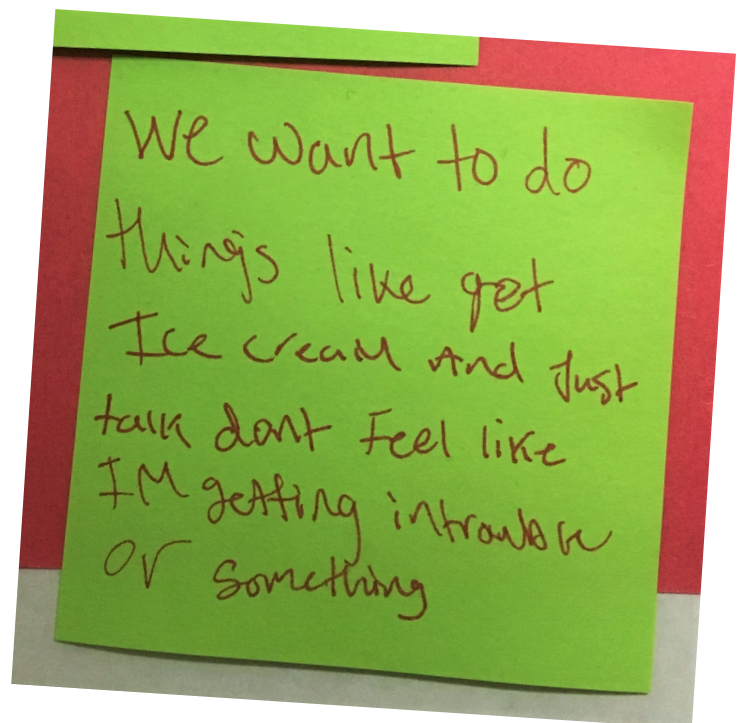 We want to do
things like get
Ice cream And Just
talk dont Feel like
IM getting introuble
or something